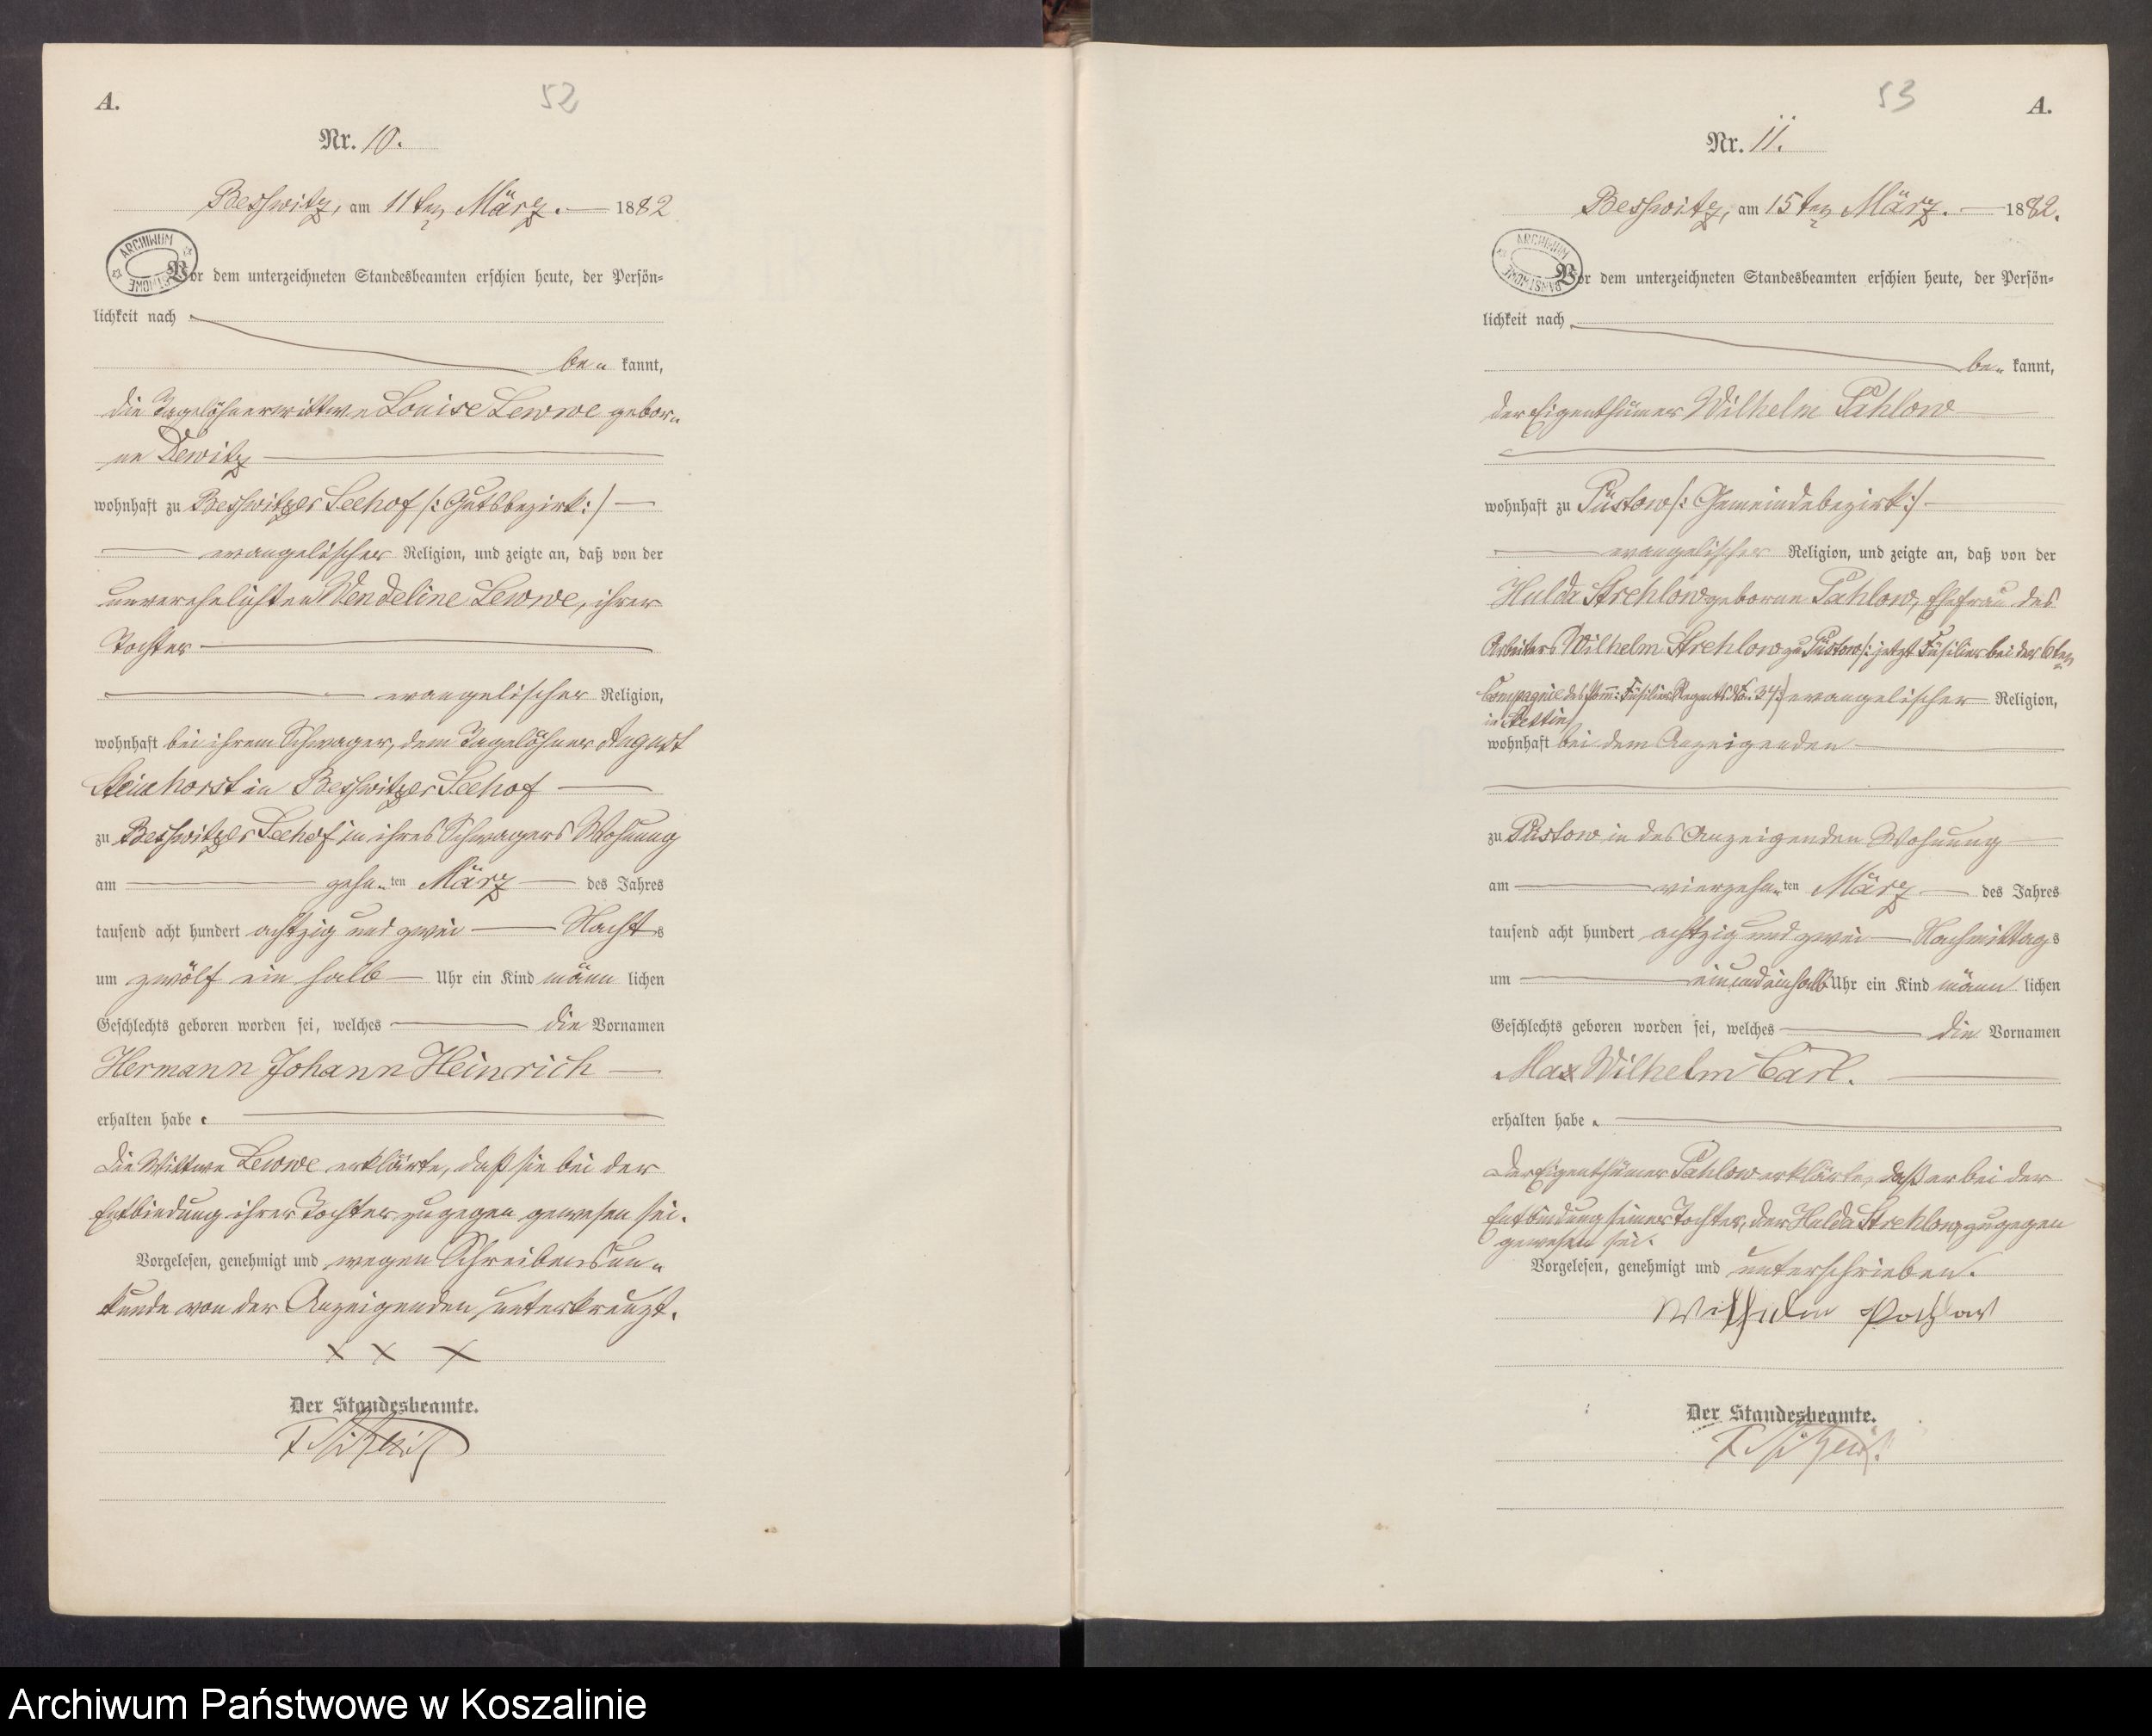 A.
52
Nr. 10.
Beßwitz, am 11ten März. 1882
ARCHIWUM PAŃSTWOWE
Vor dem unterzeichneten Standesbeamten erschien heute, der Persön=
lichkeit nach
be= kannt,
die Tagelöhnerwittwe Louise Lewwe gebor=
ne Dewitz
wohnhaft zu Beßwitzer Seehof /: Gutsbezirk :/
evangelischer Religion, und zeigte an, daß von der
unverehelichten Wendeline Lewwe, ihrer
Tochter
evangelischer Religion,
wohnhaft bei ihrem Schwager, dem Tagelöhner August
Steinhorst in Beßwitzer Seehof
zu Beßwitzer Seehof in ihres Schwagers Wohnung
am zehn=ten März des Jahres
tausend acht hundert achtzig und zwei Nachts
um zwölf ein halb Uhr ein Kind männ lichen
Geschlechts geboren worden sei, welches die Vornamen
Hermann Johann Heinrich
erhalten habe.
Die Wittwe Lewwe erklärte, daß sie bei der
Entbindung ihrer Tochter zugegen gewesen sei.
Vorgelesen, genehmigt und wegen Schreibensun=
kunde von der Anzeigenden unterkreuzt.
x x x
Der Standesbeamte.
53
A.
Nr. 11.
Beßwitz, am 15ten März. 1882.
ARCHIWUM PAŃSTWOWE
Vor dem unterzeichneten Standesbeamten erschien heute, der Persön=
lichkeit nach
be= kannt,
der Eigenthümer Wilhelm Pahlow
wohnhaft zu Püstow /: Gemeindebezirk :/
evangelischer Religion, und zeigte an, daß von der
Hulda Strehlow geborne Pahlow, Ehefrau des
Arbeiters Wilhelm Strehlow zu Püstow /: jetzt Füsilier bei der 6ten
Compagnie des Pomm: Füsilier Regmts No. 34 :/ evangelischer Religion,
in Stettin
wohnhaft bei dem Anzeigenden
zu Püstow in des Anzeigenden Wohnung
am vierzehn=ten März des Jahres
tausend acht hundert achtzig und zwei Nachmittags
um ein und ein halb Uhr ein Kind männ lichen
Geschlechts geboren worden sei, welches die Vornamen
Max Wilhelm Carl.
erhalten habe.
Der Eigenthümer Pahlow erklärte, daß er bei der
Entbindung seiner Tochter, der Hulda Strehlow zugegen
gewesen sei.
Vorgelesen, genehmigt und unterschrieben.
Wilhelm Pahlow
Der Standesbeamte.
Archiwum Państwowe w Koszalinie